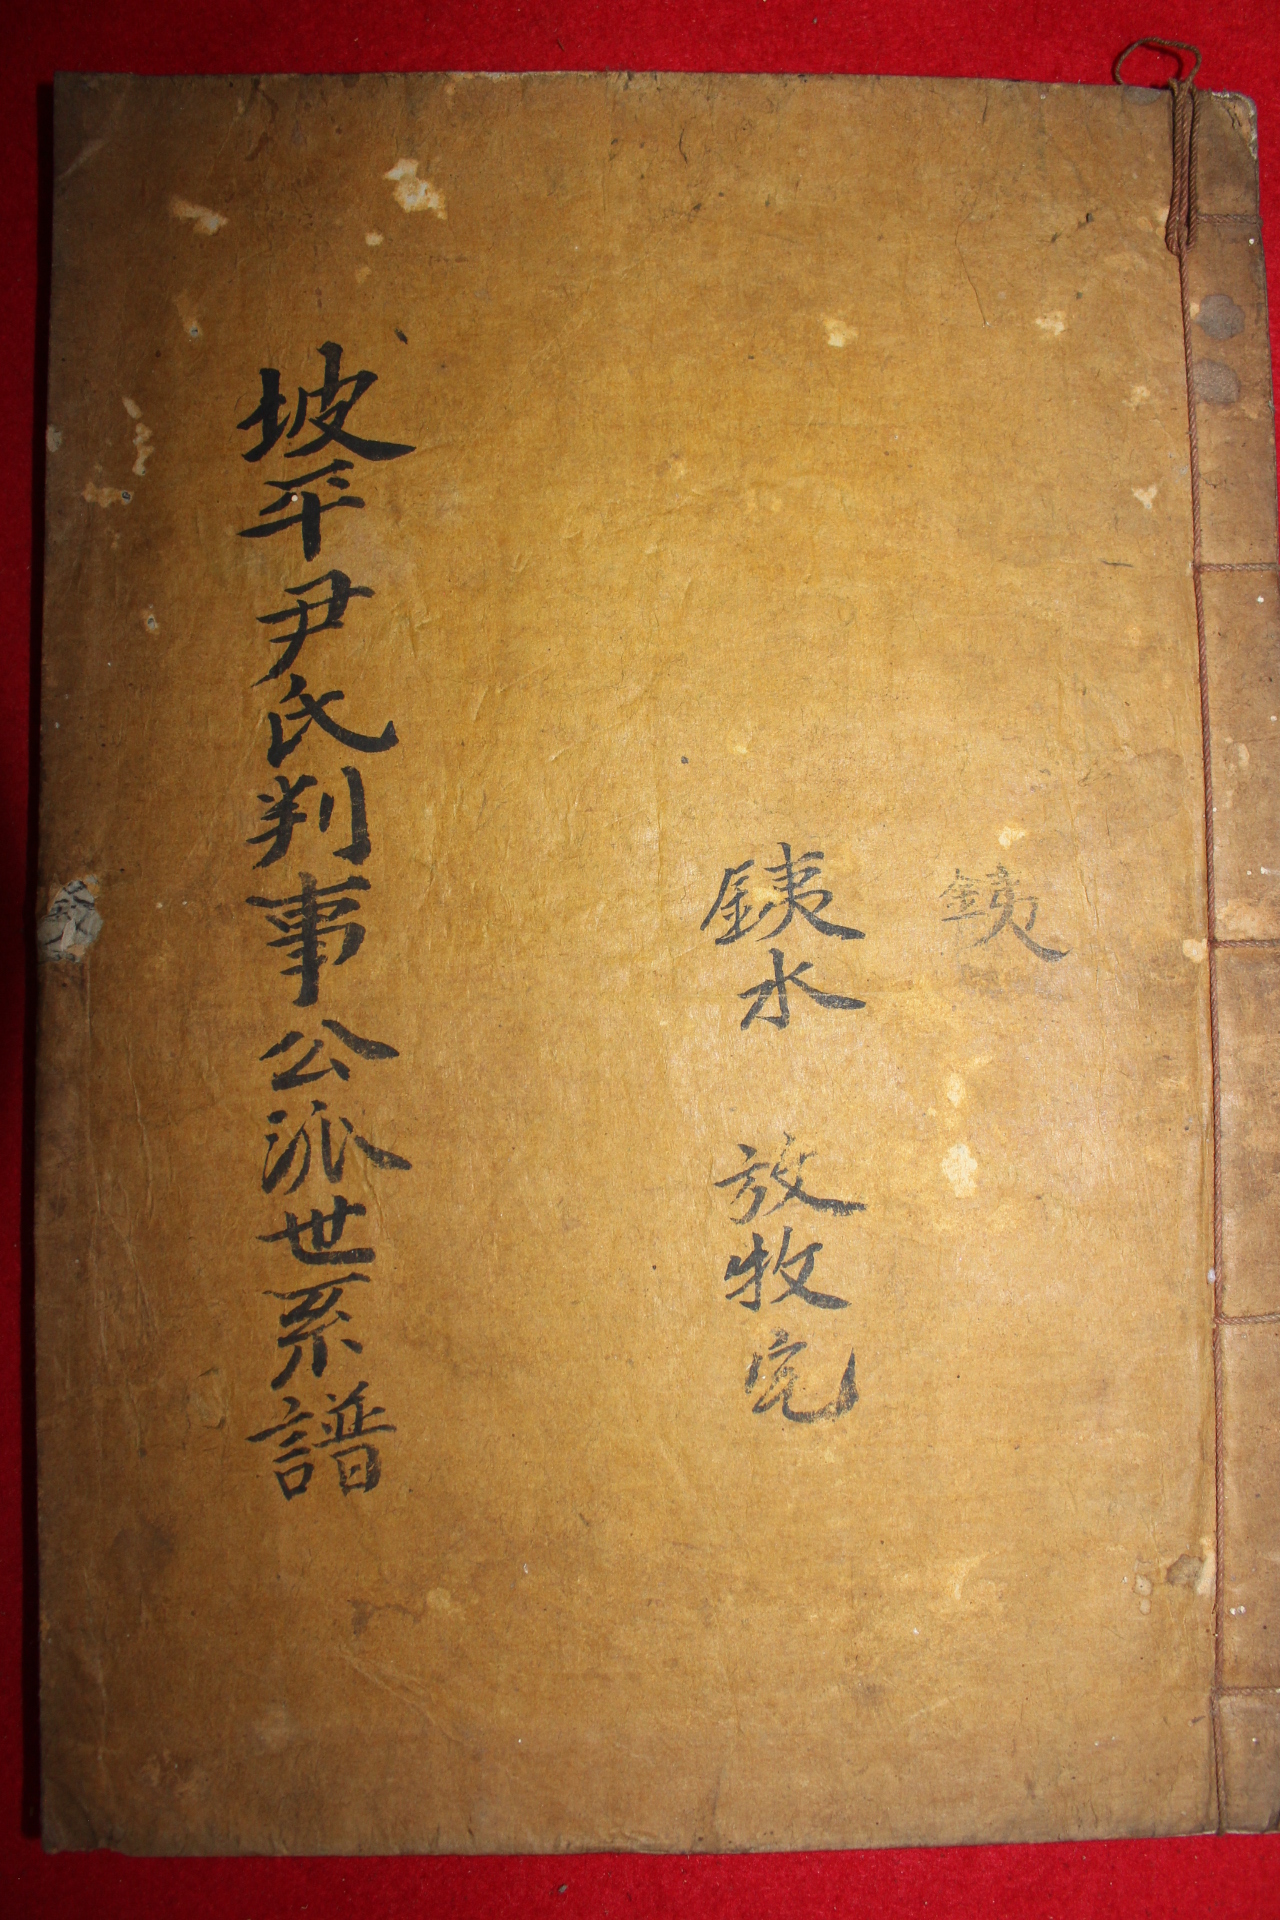 銕
銕水 放牧完
坡平尹氏判事公派世系譜